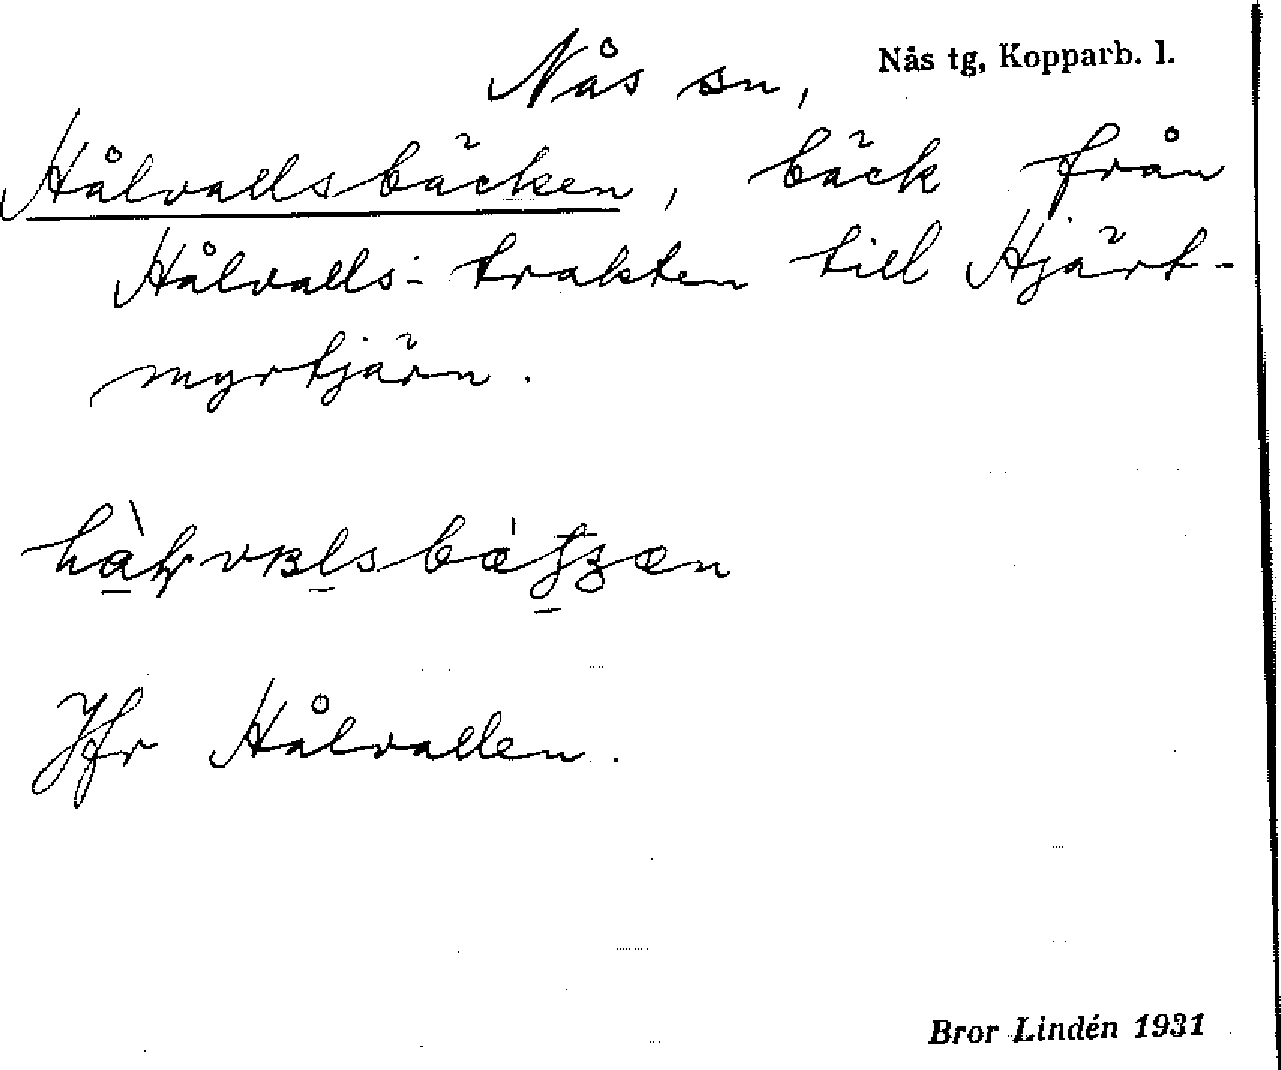 Nås sn, Nås tg, Kopparb. l.
Hålvallsbäcken, bäck från
Hålvalls-trakten till Hjärt-
myrtjärn.
Jfr Hålvallen.
Bror Lindén 1931